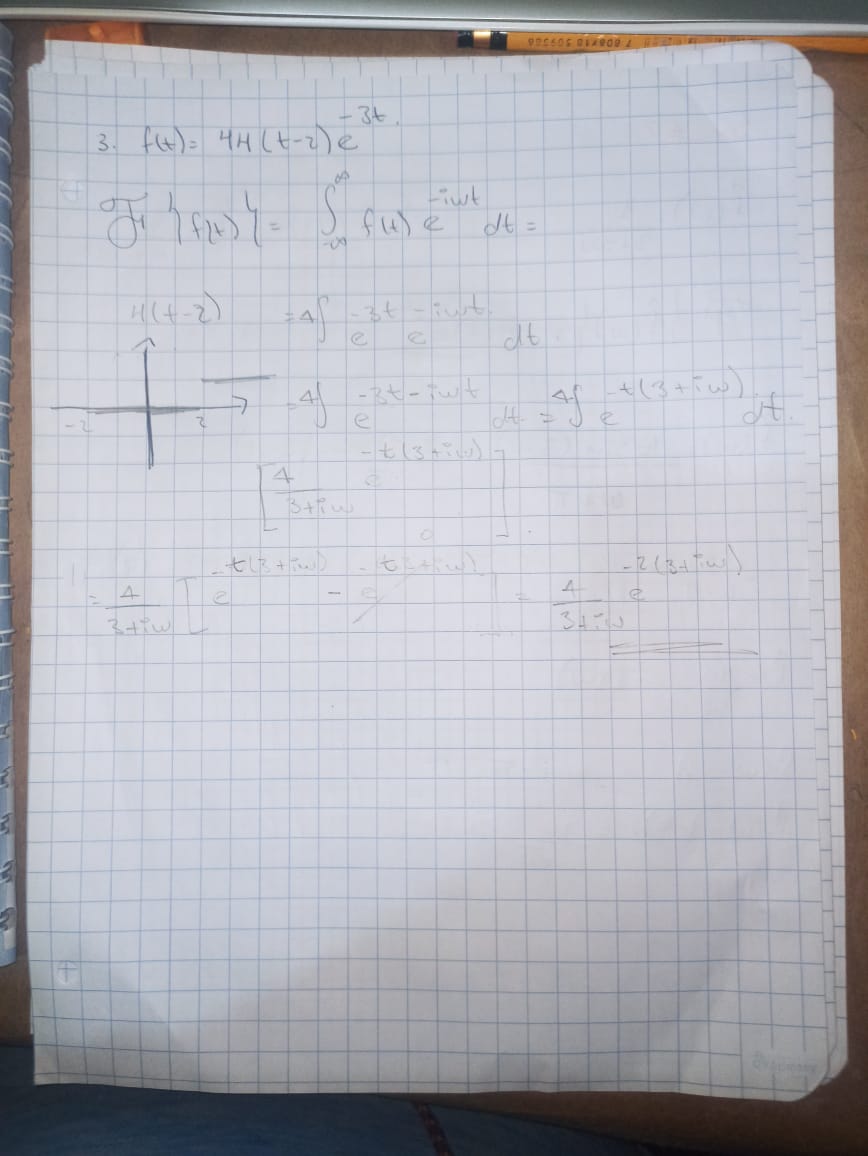 3. f(t) = 4H(t-2)e^{-3t}.
F{f(t)} = ∫_{-∞}^{∞} f(t) e^{-iwt} dt =
H(t-2) = 4∫ e^{-3t} e^{-iwt} dt
-2 2 = 4∫ e^{-3t-iwt} dt = 4∫ e^{-t(3+iw)} dt.
[4/(3+iw) e^{-t(3+iw)}]
= 4/(3+iw) [e^{-t(3+iw)} - e^{-t(3+iw)}] = 4/(3+iw) e^{-2(3+iw)}